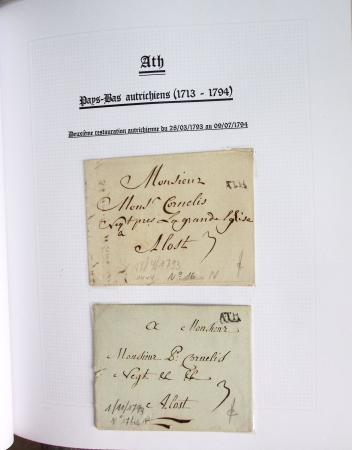 Ath
Pays-Bas autrichiens (1713 - 1794)
Deuxième restauration autrichienne du 28/03/1793 au 09/07/1794
Monsieur
Mons.r Cornelis
près La grande Eglise
à
Alost 3
ATH
a Monsieur
Monsieur Cornelis
Alost 3